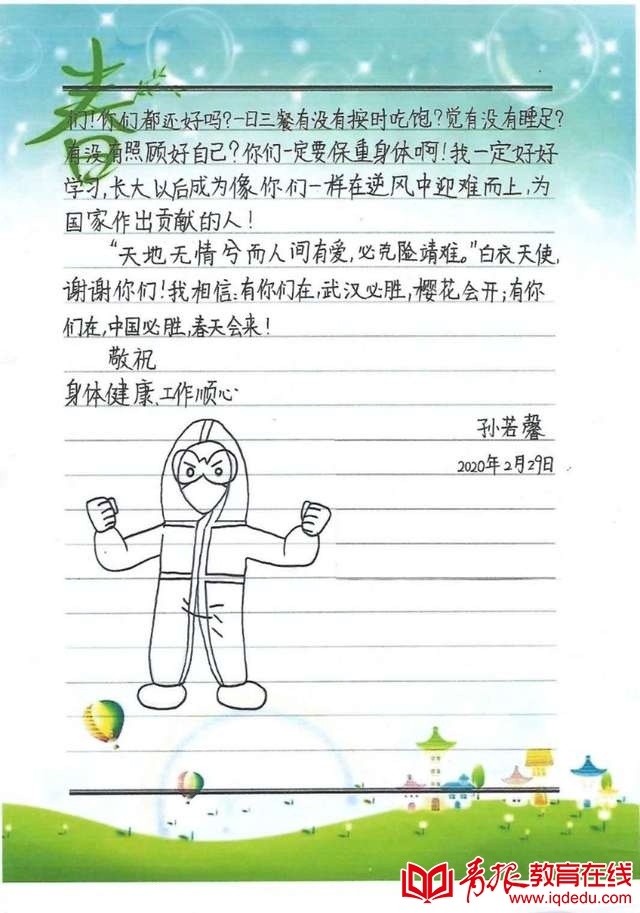 春
们！你们都还好吗？一日三餐有没有按时吃饱？觉有没有睡足？
有没有照顾好自己？你们一定要保重身体啊！我一定好好
学习，长大以后成为像你们一样在逆风中迎难而上，为
国家作出贡献的人！
“天地无情兮而人间有爱，必克险靖难。”白衣天使，
谢谢你们！我相信：有你们在，武汉必胜，樱花会开；有你
们在，中国必胜，春天会来！
敬祝
身体健康、工作顺心
孙若馨
2020年2月29日
青报教育在线
www.iqdedu.com